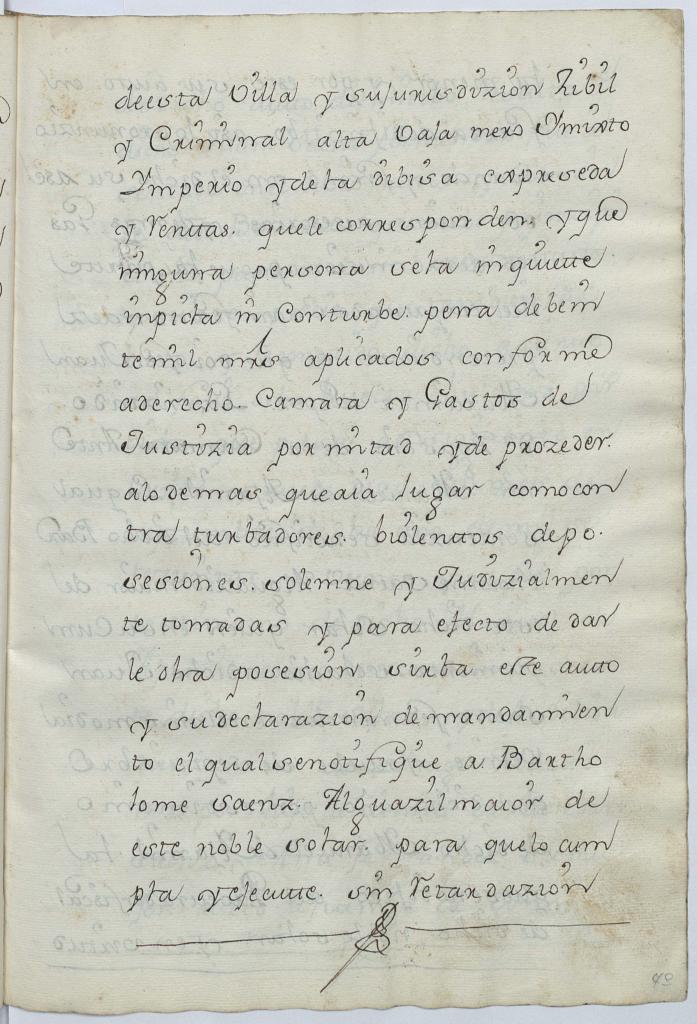 deesta Villa y su Jurisdizion Zibil
y Criminal alta Vaja mero Ymixto
Ymperio y dela dibisa expresada
y Renttas. quele corresponden, y que
ninguna persona sela inquiette
inpida in Conturbe. pena debein
te mil mrs aplicados conforme
aderecho. Camara y Gastos de
Justizia por mitad y de prozeder.
alo demas que aia lugar como con
tra turbadores. biolenttos depo.
sesiones. solemne y Judizialmen
te tomadas y para efecto de dar
le dha posesion sirba este autto
y su declarazion de mandamien
to el qual senotifique a Bartho
lome saenz. Alguazil maior de
este noble solar. para quelo cum
pla y ejecutte. sin Retardazion
49